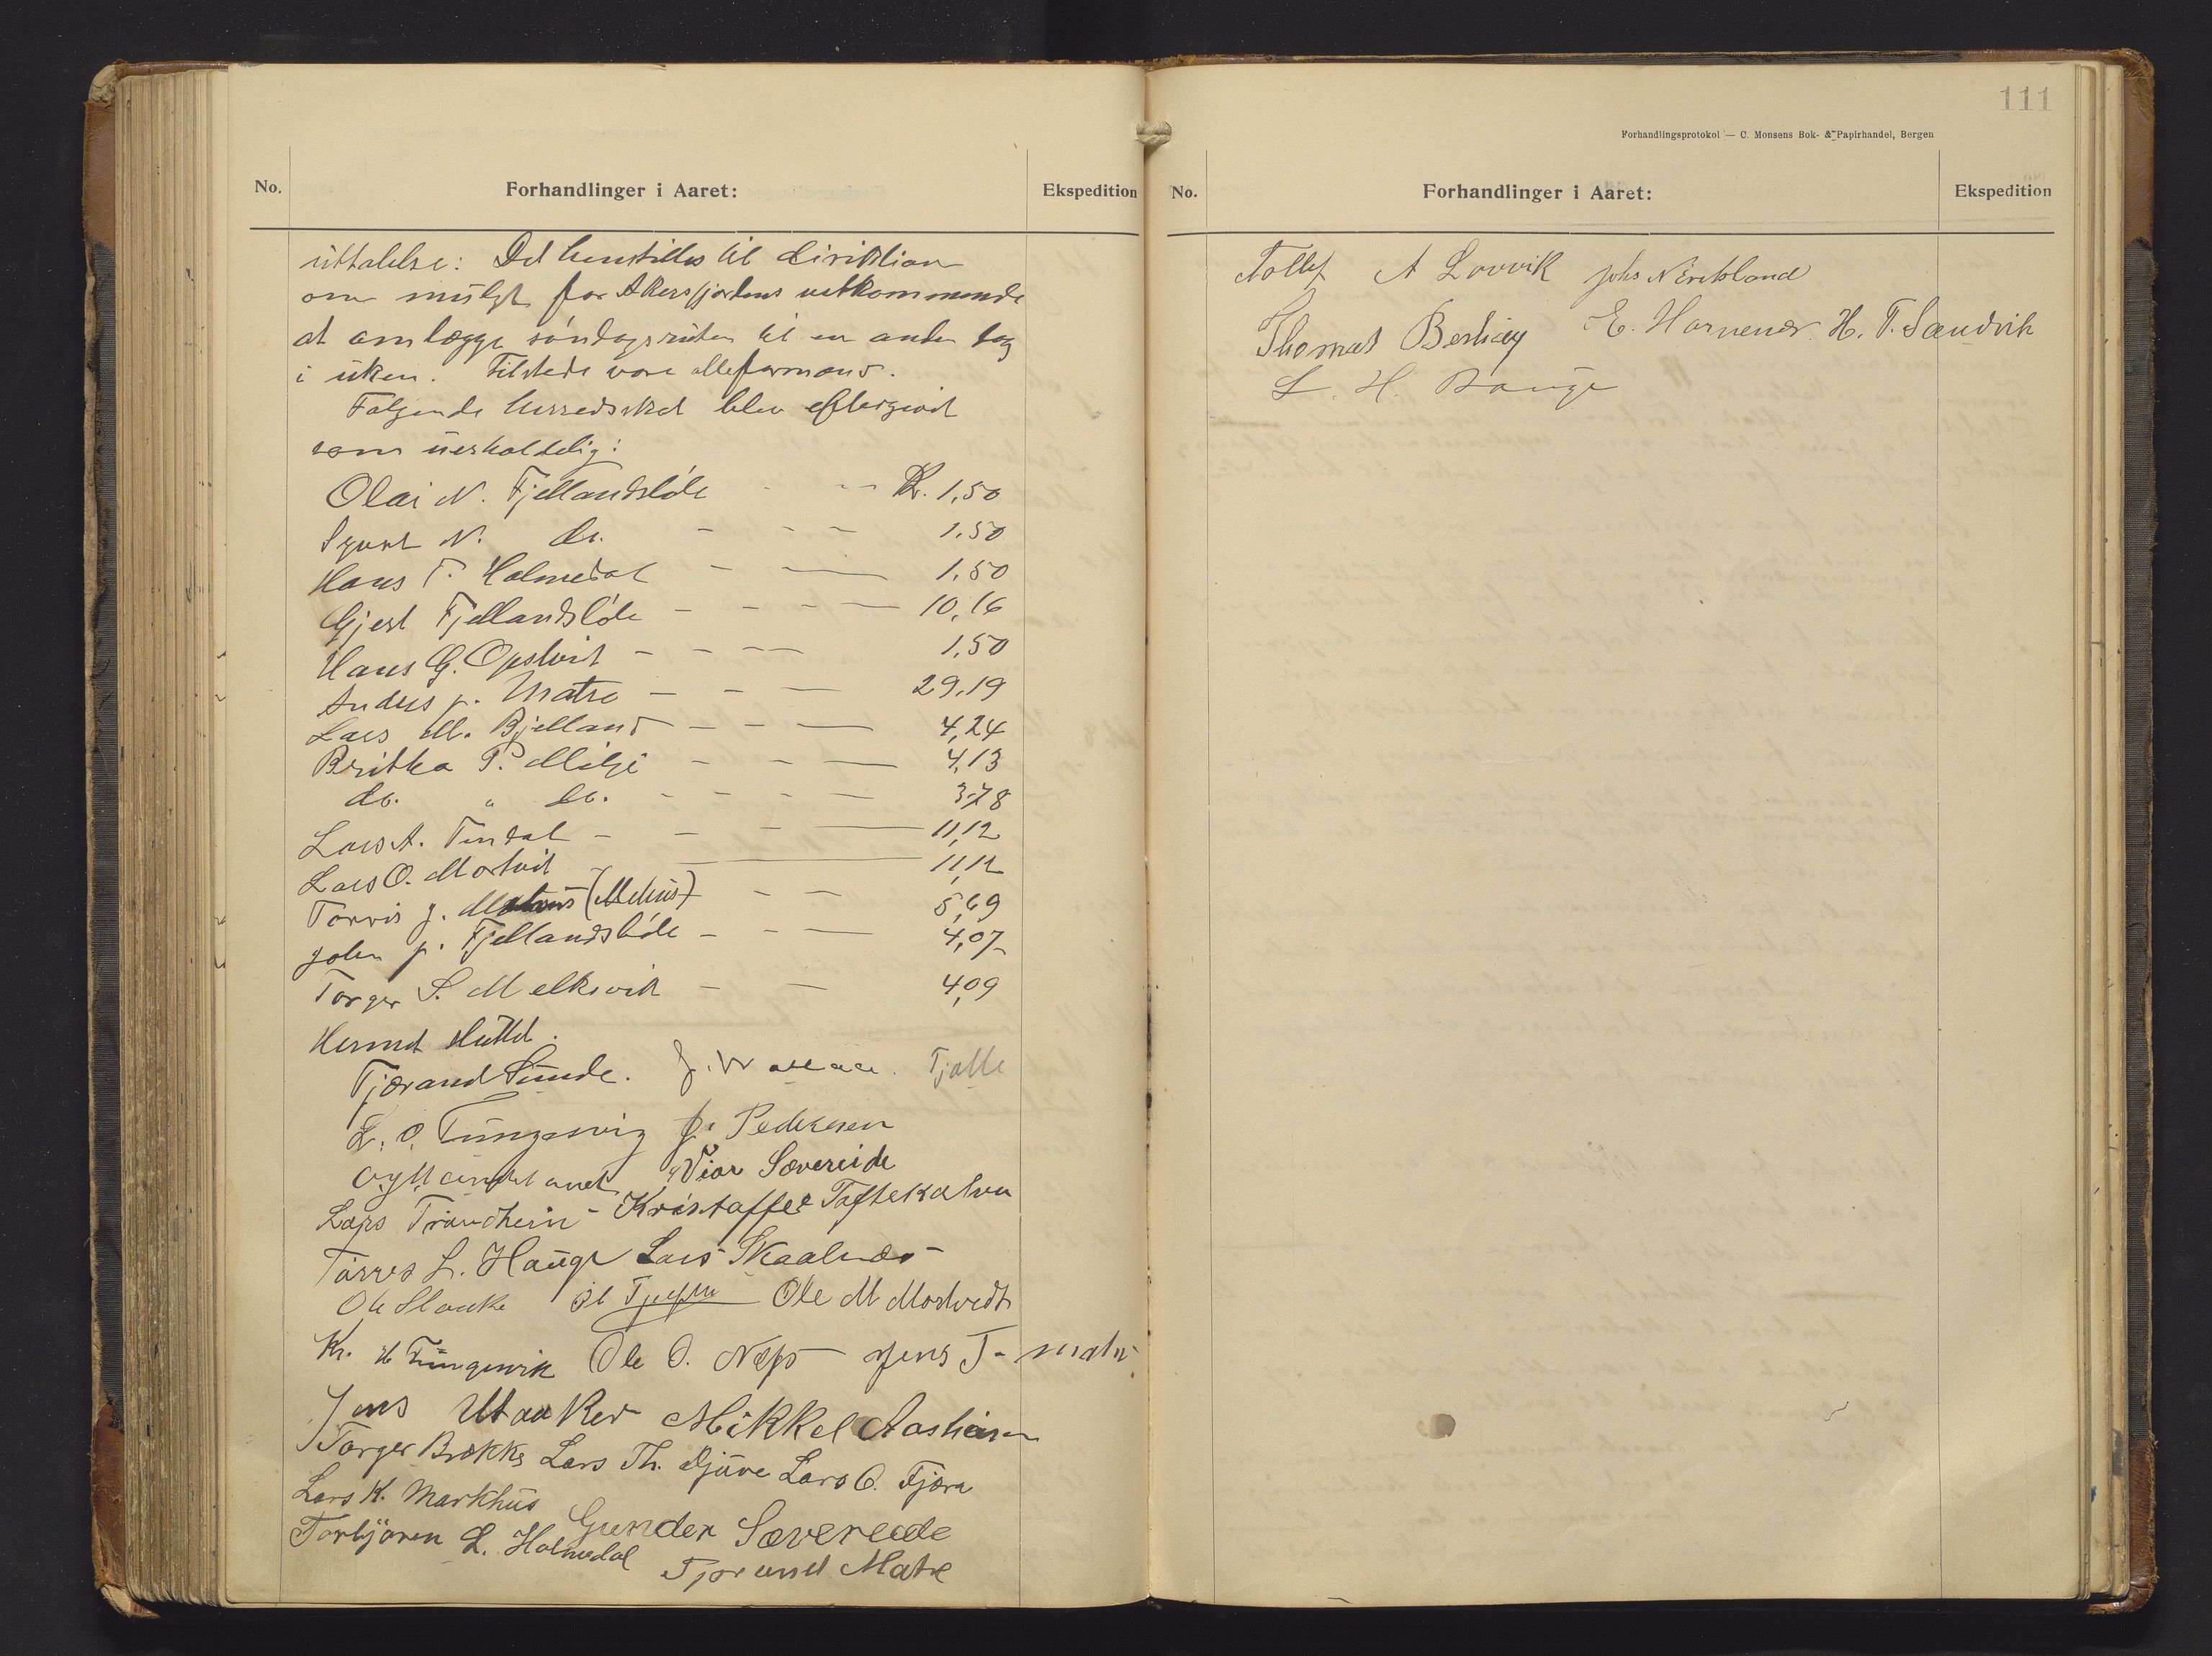 No. Forhandlinger i Aaret: Ekspedition
uttalelse: Det henstilles til direktion
om muligt for Akersfjordens vetkommende
at omlægge søndagsruten til en anden dag
i uken. Tilstede vare alle formænd.
Følgende herredsskat blev eftergivet
som uerholdelig:
Olai N. Fjellandsbøle - -- Kr. 1,50
Sjurt N. do. - - - 1.50
Hans T. Holmedal - - 1,50
Gjert Fjellandsbøle - - - - 10,16
Hans G. Opstveit - - - - 1,50
Anders J. Matre - - - 29,19
Lars M. Bjelland - - - 4,24
Britha P. Milje - - - 4,13
do. " do. - - - - 3,78
Lars A. Tindal - - - 11,12
Lars O. Mortvit - 11,12
Torris J. (Mehus) - - 5,69
John J. Fjellandsbøle - - - 4,07
Torger S. Melkevik - - 4,09
Hermed sluttet.
Tjærand Sunde. J. Tjølle
L. O. Tungesvig J. Pedersen
Viar Sævereide
Lars Trandheim - Kristoffer Toftekalven
Torres L. Hauge Lars Skaalnes
Ole Slanke Ole M Mortvedt
Kr. H Tungesvik Ole O. Næs Jens T- Matre
Jens Utaaker Mikkel Aasheim
Torger Brekke Lars Th. Djuve Lars O. Fjæra
Lars K. Markhus Gunder Sævereide
Torbjøren L. Holmedal Tjerand Matre
111
Forhandlingsprotokol — C. Monsens Bok- & Papirhandel, Bergen
No. Forhandlinger i Aaret: Ekspedition
Tollef A Lovvik Johs N Eriksland
Thomas E. H. T. Sandvik
L. H. Bauge